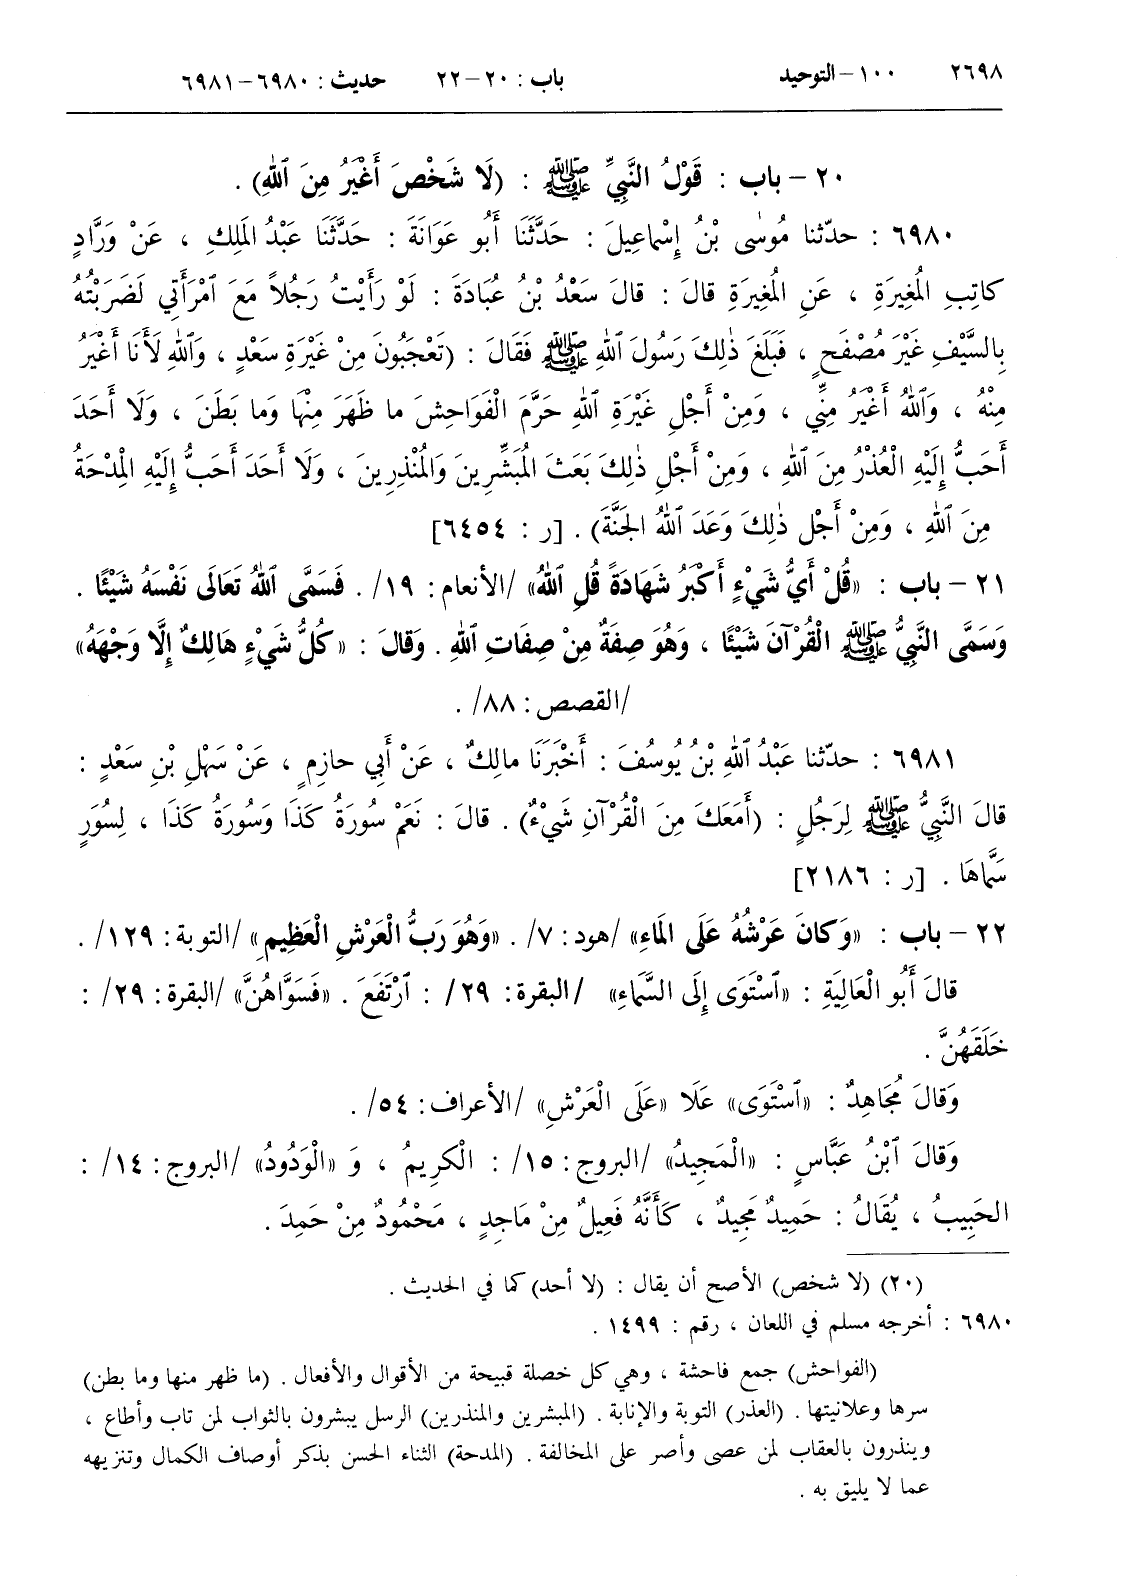 ٢٦٩٨ ١٠٠ – التوحيد باب : ٢٠ – ٢٢ حديث : ٦٩٨٠ – ٦٩٨١
٢٠ – باب : قَوْلُ النَّبِيِّ ﷺ : (لَا شَخْصَ أَغْيَرُ مِنَ ٱللهِ) .
٦٩٨٠ : حدّثنا مُوسٰى بْنُ إِسْماعِيلَ : حَدَّثَنَا أَبُو عَوَانَةَ : حَدَّثَنَا عَبْدُ المَلِكِ ، عَنْ وَرَّادٍ
كاتِبِ المُغِيرَةِ ، عَنِ المُغِيرَةِ قالَ : قالَ سَعْدُ بْنُ عُبَادَةَ : لَوْ رَأَيْتُ رَجُلاً مَعَ ٱمْرَأَتِي لَضَرَبْتُهُ
بِالسَّيْفِ غَيْرَ مُصْفَحٍ ، فَبَلَغَ ذٰلِكَ رَسُولَ ٱللهِ ﷺ فَقَالَ : (تَعْجَبُونَ مِنْ غَيْرَةِ سَعْدٍ ، وَٱللهِ لَأَنَا أَغْيَرُ
مِنْهُ ، وَٱللهُ أَغْيَرُ مِنِّي ، وَمِنْ أَجْلِ غَيْرَةِ ٱللهِ حَرَّمَ الْفَوَاحِشَ ما ظَهَرَ مِنْهَا وَما بَطَنَ ، وَلَا أَحَدَ
أَحَبُّ إِلَيْهِ الْعُذْرُ مِنَ ٱللهِ ، وَمِنْ أَجْلِ ذٰلِكَ بَعَثَ المُبَشِّرِينَ وَالمُنْذِرِينَ ، وَلَا أَحَدَ أَحَبُّ إِلَيْهِ الْمِدْحَةُ
مِنَ ٱللهِ ، وَمِنْ أَجْلِ ذٰلِكَ وَعَدَ ٱللهُ الجَنَّةَ) . [ر : ٦٤٥٤]
٢١ – باب : «قُلْ أَيُّ شَيْءٍ أَكْبَرُ شَهَادَةً قُلِ ٱللهُ» /الأنعام: ١٩/ . فَسَمَّى ٱللهُ تَعَالَى نَفْسَهُ شَيْئًا .
وَسَمَّى النَّبِيُّ ﷺ الْقُرْآنَ شَيْئًا ، وَهُوَ صِفَةٌ مِنْ صِفَاتِ ٱللهِ . وَقالَ : «كُلُّ شَيْءٍ هَالِكٌ إِلَّا وَجْهَهُ»
/القصص: ٨٨/ .
٦٩٨١ : حدّثنا عَبْدُ ٱللهِ بْنُ يُوسُفَ : أَخْبَرَنَا مالِكٌ ، عَنْ أَبِي حازِمٍ ، عَنْ سَهْلِ بْنِ سَعْدٍ :
قالَ النَّبِيُّ ﷺ لِرَجُلٍ : (أَمَعَكَ مِنَ الْقُرْآنِ شَيْءٌ) . قالَ : نَعَمْ سُورَةُ كَذَا وَسُورَةُ كَذَا ، لِسُوَرٍ
سَمَّاهَا . [ر : ٢١٨٦]
٢٢ – باب : «وَكانَ عَرْشُهُ عَلَى المَاءِ» /هود: ٧/ . «وَهُوَ رَبُّ الْعَرْشِ الْعَظِيمِ» /التوبة: ١٢٩/ .
قالَ أَبُو الْعَالِيَةِ : «ٱسْتَوَى إِلَى السَّمَاءِ» /البقرة: ٢٩/ : ٱرْتَفَعَ . «فَسَوَّاهُنَّ» /البقرة: ٢٩/ :
خَلَقَهُنَّ .
وَقالَ مُجَاهِدٌ : «ٱسْتَوَى» عَلَا «عَلَى الْعَرْشِ» /الأعراف: ٥٤/ .
وَقالَ ٱبْنُ عَبَّاسٍ : «الْمَجِيدُ» /البروج: ١٥/ : الْكَرِيمُ ، وَ «الْوَدُودُ» /البروج: ١٤/ :
الحَبِيبُ ، يُقَالُ : حَمِيدٌ مَجِيدٌ ، كَأَنَّهُ فَعِيلٌ مِنْ مَاجِدٍ ، مَحْمُودٌ مِنْ حَمِدَ .
(٢٠) (لا شخص) الأصح أن يقال : (لا أحد) كما في الحديث .
٦٩٨٠ : أخرجه مسلم في اللعان ، رقم : ١٤٩٩ .
(الفواحش) جمع فاحشة ، وهي كل خصلة قبيحة من الأقوال والأفعال . (ما ظهر منها وما بطن)
سرها وعلانيتها . (العذر) التوبة والإنابة . (المبشرين والمنذرين) الرسل يبشرون بالثواب لمن تاب وأطاع ،
وينذرون بالعقاب لمن عصى وأصر على المخالفة . (المدحة) الثناء الحسن بذكر أوصاف الكمال وتنزيهه
عما لا يليق به .